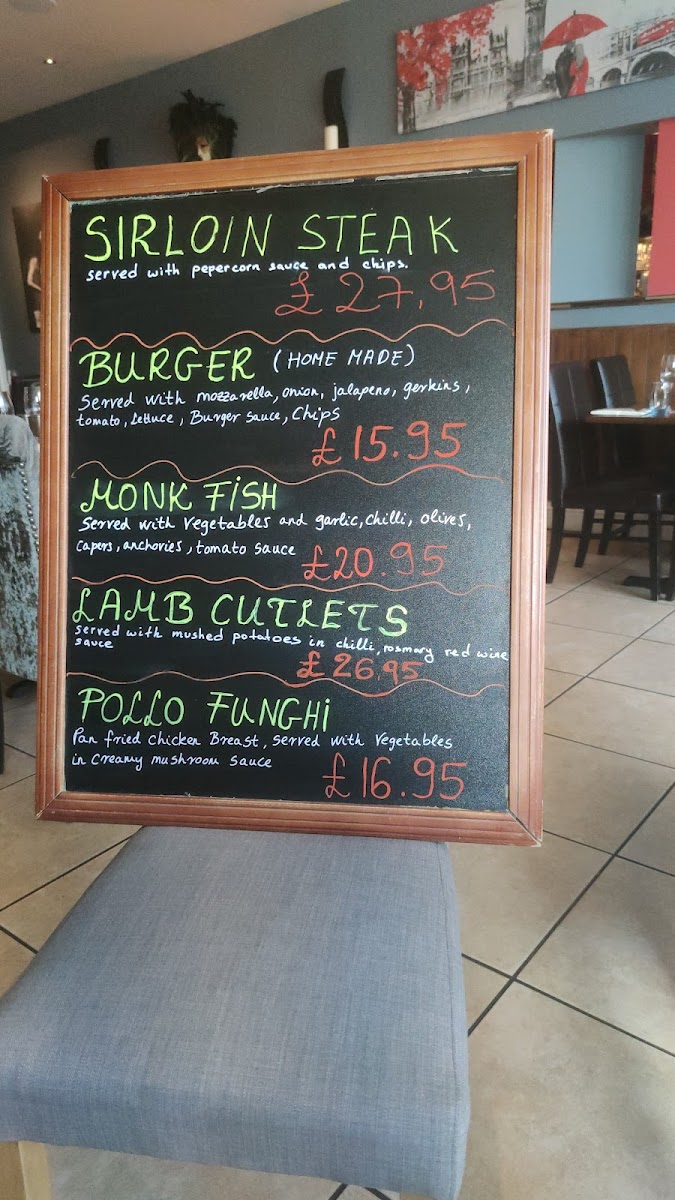 SIRLOIN STEAK
served with pepercorn sauce and chips.
£27.95
BURGER (HOME MADE)
Served with mozzarella, onion, jalapeno, gerkins,
tomato, Lettuce, Burger Sauce, Chips
£15.95
MONK FiSH
Served with vegetables and garlic, chilli, olives,
capers, anchovies, tomato sauce
£20.95
LAMB CUTLETS
served with mushed potatoes in chilli, rosmary red wine
sauce
£26.95
POLLO FUNGHi
Pan fried Chicken Breast, served with Vegetables
in Creamy mushroom sauce
£16.95